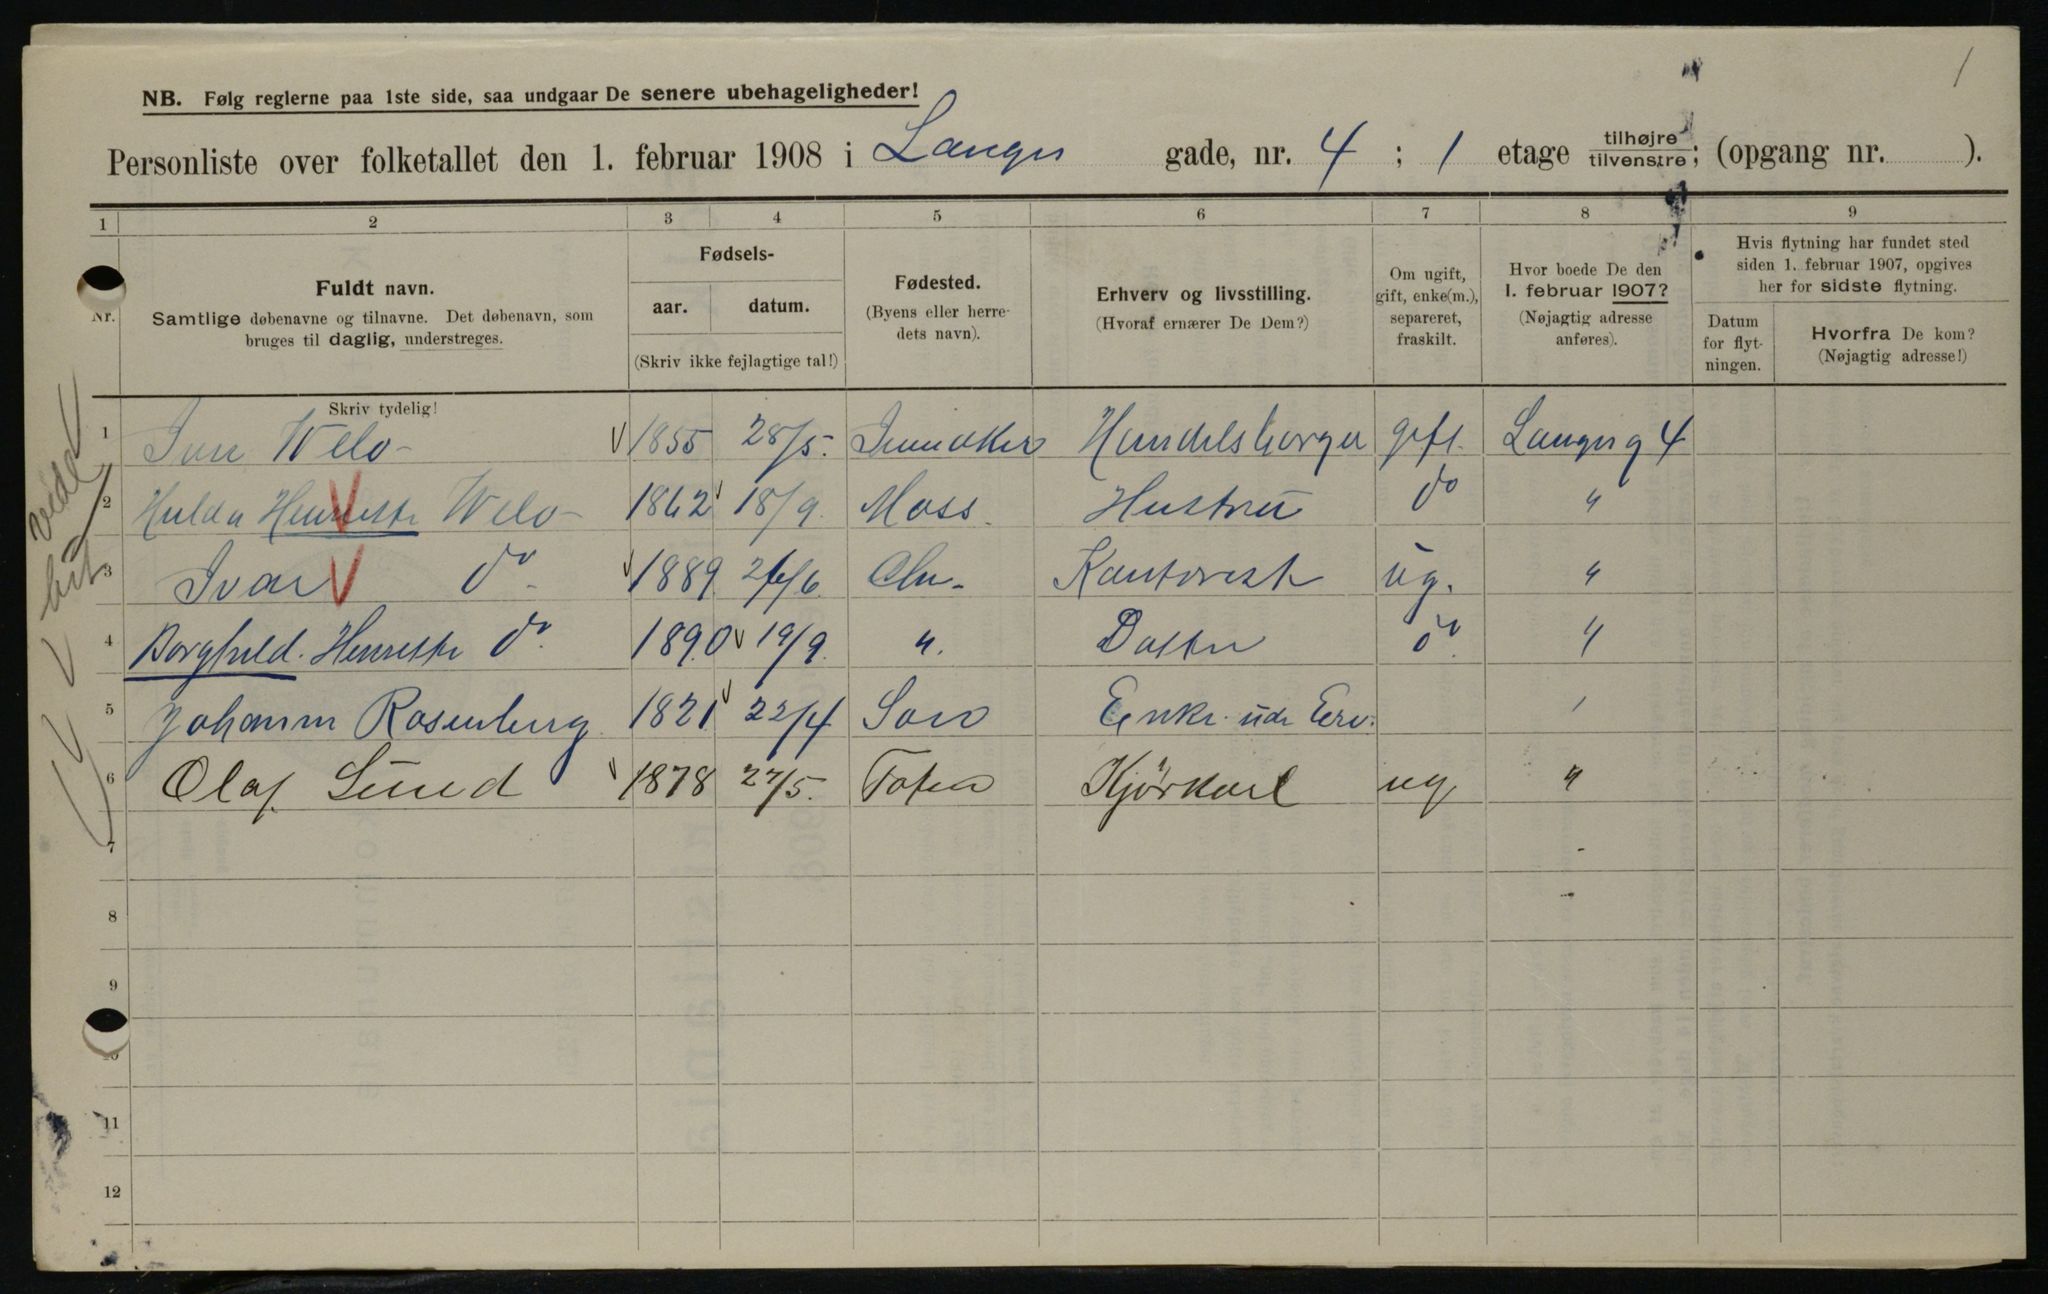 1
NB. Følg reglerne paa 1ste side, saa undgaar De senere ubehageligheder!
Personliste over folketallet den 1. februar 1908 i Langes gade, nr. 4 ; 1 etage tilhøjre tilvenstre; (opgang nr. ).
1 2 3 4 5 6 7 8 9
Nr.
Fuldt navn.
Samtlige døbenavne og tilnavne. Det døbenavn, som
bruges til daglig, understreges.
Skriv tydelig!
Fødsels-
aar. datum.
(Skriv ikke fejlagtige tal!)
Fødested.
(Byens eller herre-
dets navn).
Erhverv og livsstilling.
(Hvoraf ernærer De Dem?)
Om ugift,
gift, enke(m.),
separeret,
fraskilt.
Hvor boede De den
1. februar 1907?
(Nøjagtig adresse
anføres).
Hvis flytning har fundet sted
siden 1. februar 1907, opgives
her for sidste flytning.
Datum
for flyt-
ningen.
Hvorfra De kom?
(Nøjagtig adresse!)
1 Iver Welo 1855 28/5. Handelsborger gift. Langesg 4
2 Hulda Henriette Welo 1862 18/9. Moss. Hustru do "
3 Ivar do 1889 Chr. Kontorist ug. "
4 Borghild. Henriette do 1890 19/9. " Datter do "
5 Johanne Rosenberg 1821 22/4 Enke. udn Erv.
6 Olaf Lund 1878 27/5. Toten Kjørkarl ug "
7
8
9
10
11
12